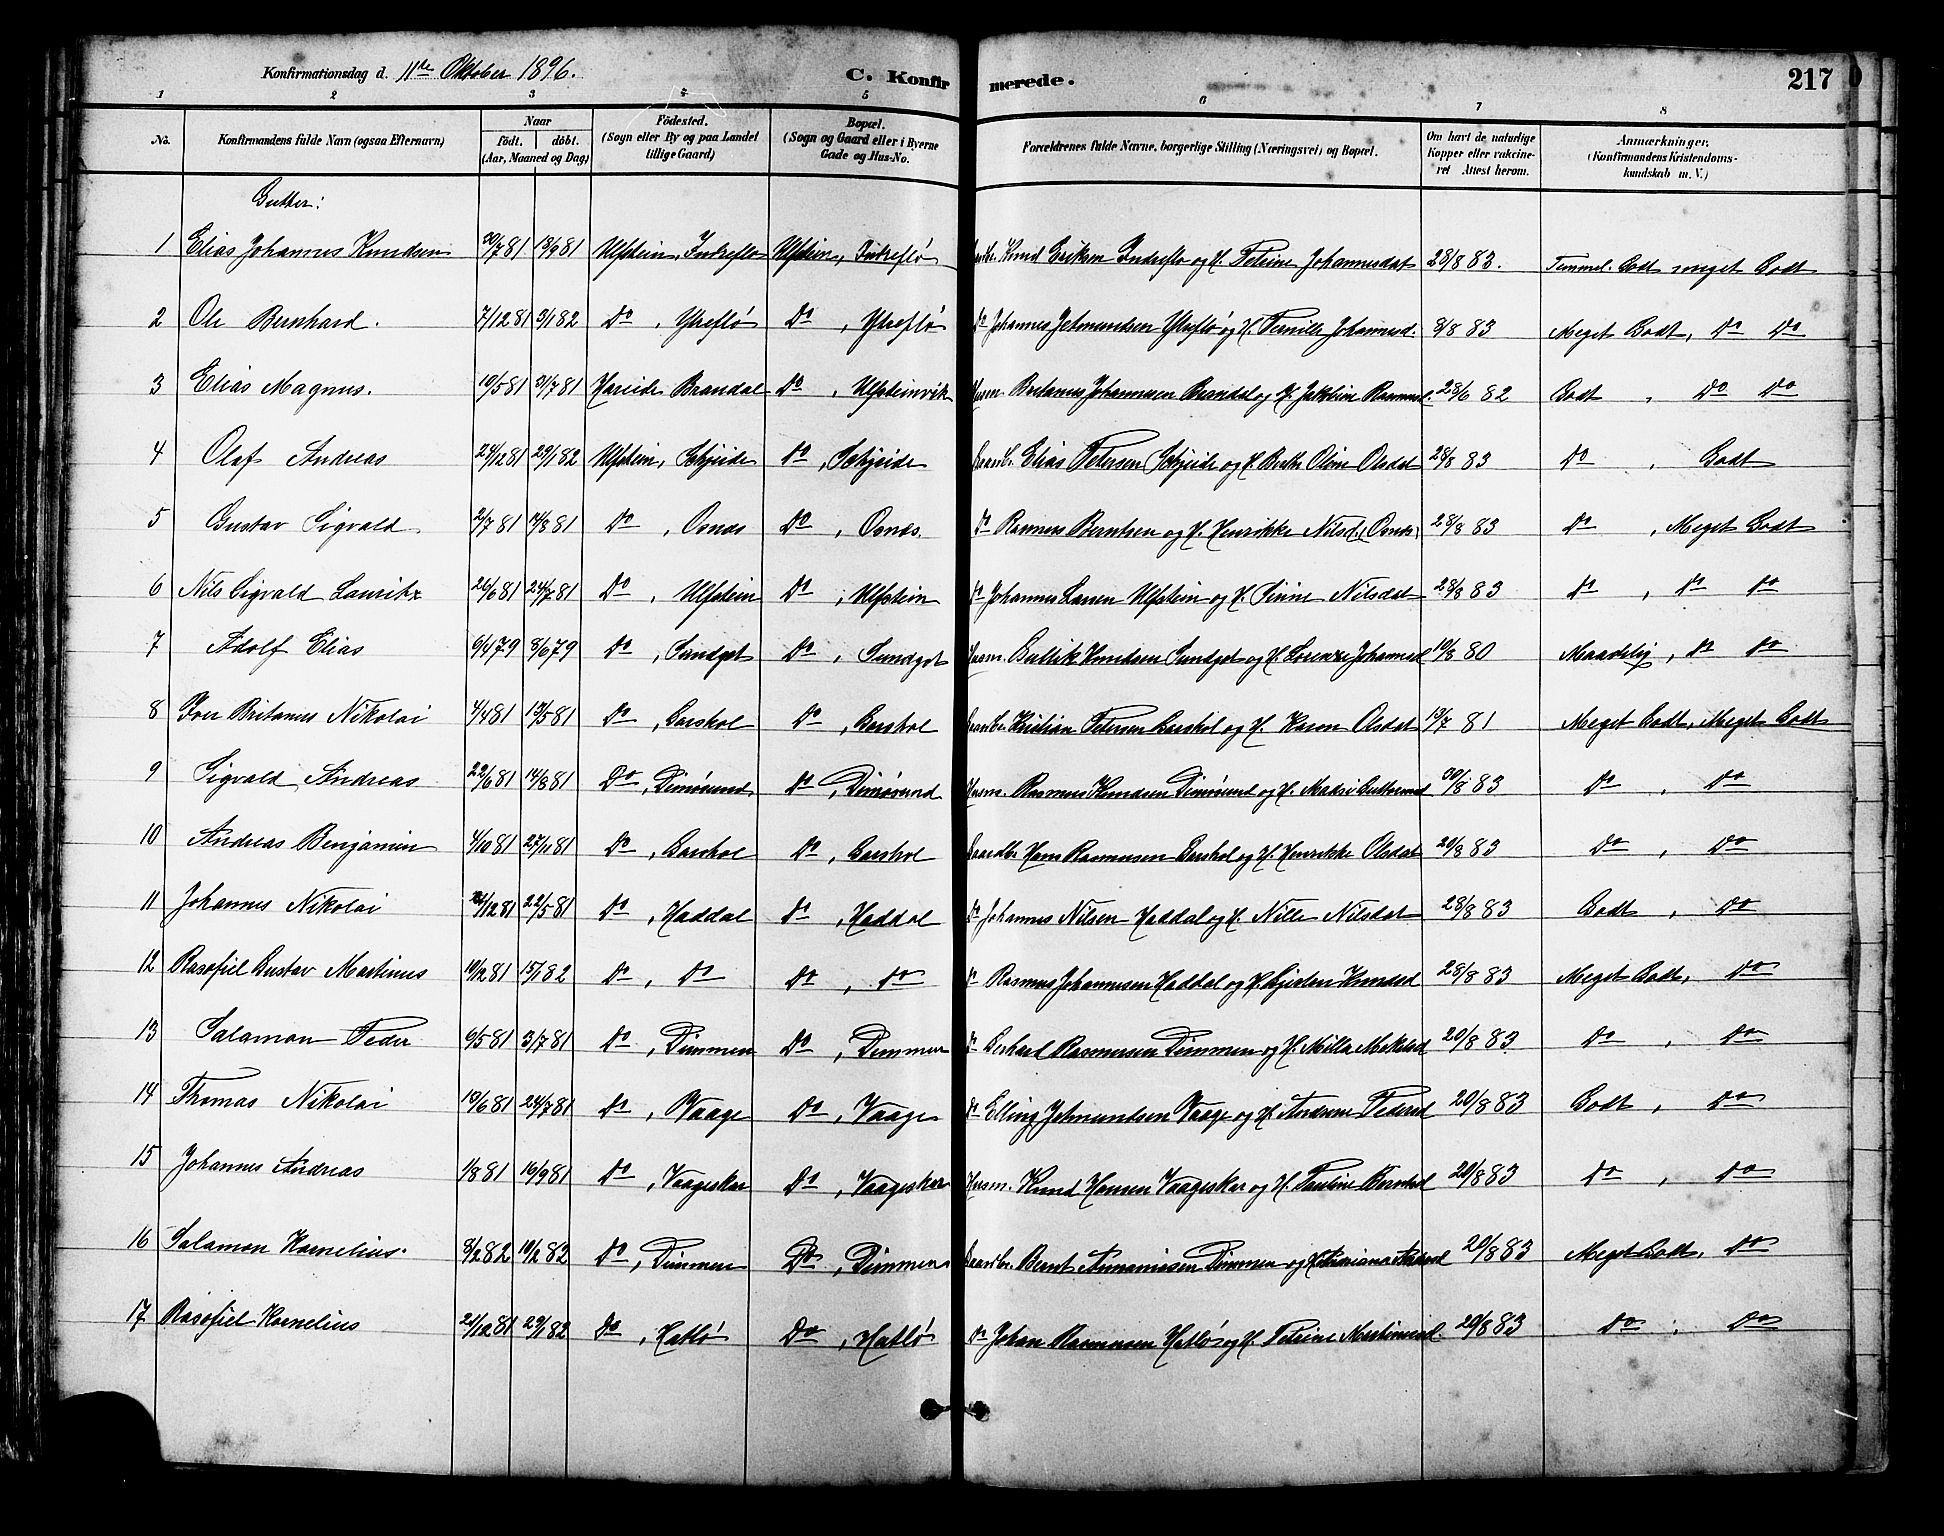 Konfirmationsdag d. 11te Oktober 1896. C. Konfirmerede. 217
1 2 3 4 5 6 7 8
No. Konfirmandens fulde Navn (ogsaa Efternavn) Naar födt. döbt. (Aar, Maaned og Dag) Födested. (Sogn eller By og paa Landet tillige Gaard) Bopæl. (Sogn og Gaard eller i Byerne Gade og Hus-No. Forældrenes fulde Navne, borgerlige Stilling (Næringsvei) og Bopæl. Om havt de naturlige Kopper eller vakcineret Attest herom. Anmærkninger. (Konfirmandens Kristendomskundskab m. V.)
Gutter:
1 Elias Johannes Knudsen 30/7 81 18/9 81 Ulfstein, Indreflø Ulfstein, Indreflø Gaardbr. Knud Eriksen Indreflø og H. Petrine Johannesdat 28/8 83. Temmel. Godt meget Godt
2 Ole Bernhard. 7/12 81 3/1 82 Do, Ytreflø Do, Ytreflø Do Johannes Jetmundsen Ytreflø og H. Pernille Johannesd. 8/8 83 Meget Godt, Do Do
3 Elias Magnus. 10/5 81 31/7 81 Hareide Brandal Do, Ulfsteinvik Husm. Britanus Johannesen Brandal og H. Jakobine Rasmusd. 28/6 82 Godt, Do Do
4 Olaf Andreas 24/12 81 29/1 82 Ulfstein, Skjeide Do, Skjeide Gaardbr. Elias Petersen Skjeide og H. Berthe Oline Olsdat 28/8 83 Do, Godt
5 Gustav Sigvald 2/7 81 14/8 81 Do, Osnes Do, Osnes. Do Rasmus Berntsen og H. Henrikke Nilsd. (Osnes) 28/8 83 Do, Meget Godt
6 Nils Sigvald Lauritz 26/6 81 24/7 81 Do, Ulfstein Do, Ulfstein Do Johannes Larsen Ulfstein og H. Sinne Nilsdat 28/8 83 Do, Do Do
7 Adolf Elias 6/4 79 8/6 79 Do, Sundgot Do, Sundgot Husm. Knudsen Sundgot og H. Lorenze Johannesd 10/8 80 Maadelig, Do Do
8 Iver Britanus Nikolai 4/4 81 13/5 81 Do, Garshol Do, Garshol Gaardbr. Kristian Petersen Garshol og H. Karen Olsdat 13/7 81 Meget Godt, Meget Godt
9 Sigvald Andreas 22/6 81 14/8 81 Do, Dimøsund. Do, Dimøsund Husm. Rasmus Knudsen Dimøsund og H. 30/8 83 Do, Do
10 Andreas Benjamin 4/10 81 27/11 81 Do, Garshol Do, Garshol Gaardbr. Hans Rasmussen Garshol og H. Henrikke Olsdat 20/8 83 Do, Do
11 Johannes Nikolai /12 81 22/5 81 Do, Haddal Do, Haddal Do Johannes Nilsen Haddal og H. Nille Nilsdat 28/8 83 Godt, Do
12 Rasofiel Gustav Martinus 10/12 81 15/1 82 Do, Do Do, Do Do Rasmus Johannesen Haddal og H. Knudsd 28/8 83 Meget Godt, Do
13 Salamon Peder 6/5 81 3/7 81 Do, Dimmen Do, Dimmen Do Rasmussen Dimmen og H. 20/8 83 Do, Do
14 Thomas Nikolai 10/6 81 24/7 81 Do, Vaage Do, Vaage Do Elling Jetmundsen Vaage og H. Andrine Pedersd 20/8 83 Godt, Do
15 Johannes Andreas 1/8 81 16/9 81 Do, Vaageskar Do, Vaageskar Husm. Knud Hansen Vaageskar og H. Pauline Berntsd 20/8 83 Do, Do
16 Salamon Kornelius. 8/2 82 19/2 82 Do, Dimmen Do, Dimmen. Gaardbr. Bernt Annaniasen Dimmen og H. 20/8 83 Meget Godt, Do
17 Rasofiel Kornelius 21/12 81 29/1 82 Do, Hatlø Do, Hatlø Do Johan Rasmussen Hatlø og H. Petrine Martinusd. 20/8 83 Do, Do